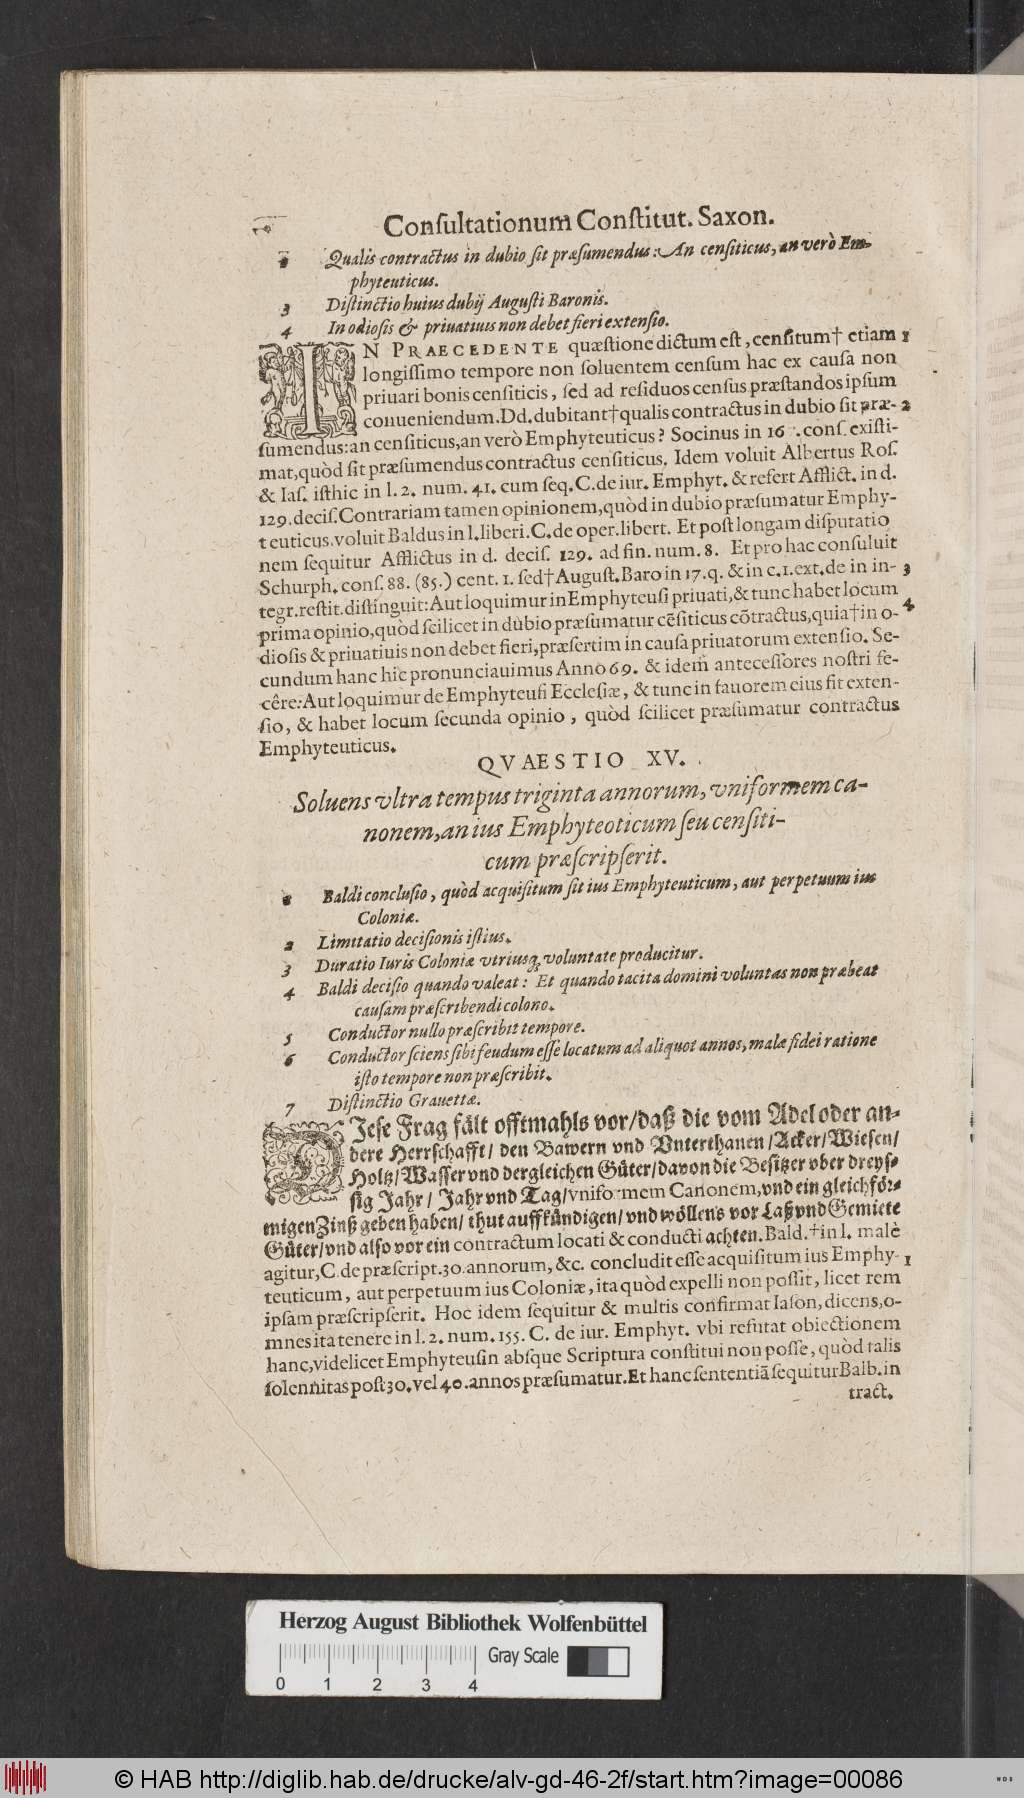 Conſultationum Conſtitut. Saxon.
2 Qualis contractus in dubio ſit præſumendus: An cenſiticus, an verò Em-
phyteuticus.
3 Diſtinctio huius dubij Auguſti Baronis.
4 In odioſis & priuatiuis non debet fieri extenſio.
IN PRAECEDENTE quæſtione dictum eſt, cenſitum† etiam 1
longiſſimo tempore non ſoluentem cenſum hac ex cauſa non
priuari bonis cenſiticis, ſed ad reſiduos cenſus præſtandos ipſum
conueniendum. Dd. dubitant† qualis contractus in dubio ſit præ- 2
ſumendus: an cenſiticus, an verò Emphyteuticus? Socinus in 16 . conſ. exiſti-
mat, quòd ſit præſumendus contractus cenſiticus. Idem voluit Albertus Roſ.
& Iaſ. iſthic in l. 2. num. 41. cum ſeq. C. de iur. Emphyt. & refert Afflict. in d.
129. deciſ. Contrariam tamen opinionem, quòd in dubio præſumatur Emphy-
teuticus. voluit Baldus in l. liberi. C. de oper. libert. Et poſt longam diſputatio
nem ſequitur Afflictus in d. deciſ. 129. ad fin. num. 8. Et pro hac conſuluit
Schurph. conſ. 88. (85.) cent. 1. ſed† Auguſt. Baro in 17. q. & in c. 1. ext. de in in- 3
tegr. reſtit. diſtinguit: Aut loquimur in Emphyteuſi priuati, & tunc habet locum
prima opinio, quòd ſcilicet in dubio præſumatur cẽſiticus cõtractus, quia† in o- 4
dioſis & priuatiuis non debet fieri, præſertim in cauſa priuatorum extenſio. Se-
cundum hanc hic pronunciauimus Anno 69. & idem anteceſſores noſtri fe-
cêre: Aut loquimur de Emphyteuſi Eccleſiæ, & tunc in fauorem eius fit exten-
ſio, & habet locum ſecunda opinio, quòd ſcilicet præſumatur contractus
Emphyteuticus.
QVAESTIO XV.
Soluens vltra tempus triginta annorum, vniformem ca-
nonem, an ius Emphyteoticum ſeu cenſiti-
cum præſcripſerit.
1 Baldi concluſio, quòd acquiſitum ſit ius Emphyteuticum, aut perpetuum ius
Coloniæ.
2 Limitatio deciſionis iſtius.
3 Duratio Iuris Coloniæ vtriusq; voluntate producitur.
4 Baldi deciſio quando valeat: Et quando tacita domini voluntas non præbeat
cauſam præſcribendi colono.
5 Conductor nullo præſcribit tempore.
6 Conductor ſciens ſibi feudum eſſe locatum ad aliquot annos, malæ fidei ratione
iſto tempore non præſcribit.
7 Diſtinctio Grauettæ.
DIeſe Frag fält offtmahls vor/ daß die vom Adel oder an-
dere Herrſchafft/ den Bawern vnd Vnterthanen/ Acker/ Wieſen/
Holtz/ Waſſer vnd dergleichen Güter/ davon die Beſitzer vber dreyſ-
ſig Jahr/ Jahr vnd Tag/ vniformem Canonem, vnd ein gleichför-
migen Zinß geben haben/ thut auffkündigen/ vnd wöllens vor Laß vnd Gemiete
Güter/ vnd alſo vor ein contractum locati & conducti achten. Bald.† in l. malè
agitur, C. de præſcript. 30. annorum, &c. concludit eſſe acquiſitum ius Emphy- 1
teuticum, aut perpetuum ius Coloniæ, ita quòd expelli non poſſit, licet rem
ipſam præſcripſerit. Hoc idem ſequitur & multis confirmat Iaſon, dicens, o-
mnes ita tenere in l. 2. num. 155. C. de iur. Emphyt. vbi refutat obiectionem
hanc, videlicet Emphyteuſin absque Scriptura conſtitui non poſſe, quòd talis
ſolennitas poſt 30. vel 40. annos præſumatur. Et hanc ſententiã ſequitur Balb. in
tract.
Herzog August Bibliothek Wolfenbüttel
Gray Scale
0 1 2 3 4
© HAB http://diglib.hab.de/drucke/alv-gd-46-2f/start.htm?image=00086